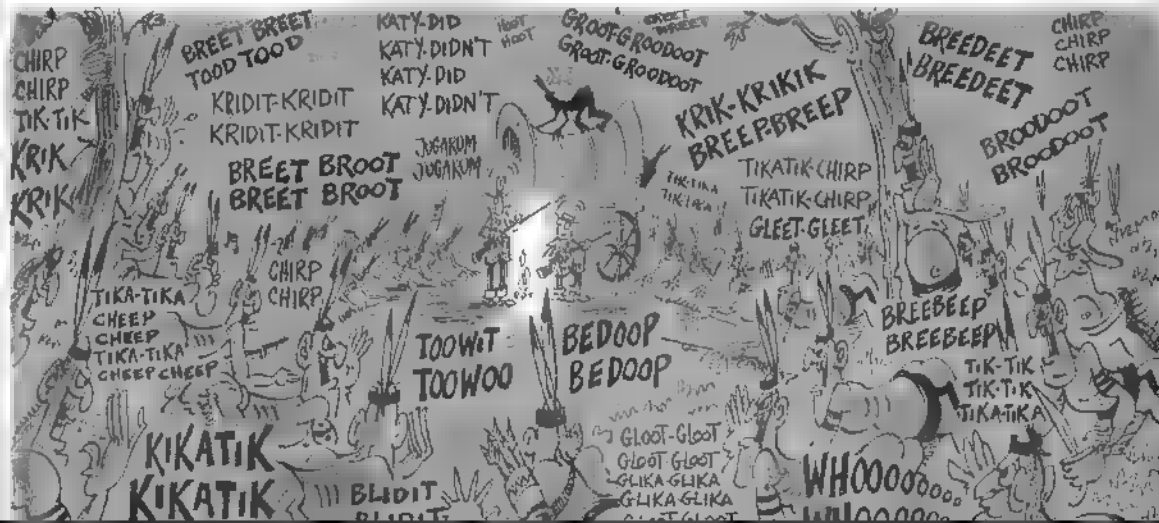 CHIRP
CHIRP
TIK-TIK
KRIK
KRIK
BREET BREET
TOOD TOOD
KRIDIT-KRIDIT
KRIDIT-KRIDIT
BREET BROOT
BREET BROOT
KATY-DID
KATY-DIDN'T
KATY-DID
KATY-DIDN'T
HOOT
HOOT
JUGARUM
JUGARUM
GROOT-GROODOOT
GROOT-GROODOOT
KRIK-KRIKIK
BREEP-BREEP
TIK-TIKA
TIKATIK-CHIRP
TIKATIK-CHIRP
GLEET-GLEET
BREEDEET
BREEDEET
CHIRP
CHIRP
CHIRP
BROODOOT
BROODOOT
CHIRP
CHIRP
TIKA-TIKA
CHEEP
CHEEP
TIKA-TIKA
CHEEP CHEEP
TOOWIT
TOOWOO
BEDOOP
BEDOOP
BREEBEEP
BREEBEEP
TIK-TIK
TIK-TIK
TIKATIKA
KIKATIK
KIKATIK
BLIDIT
BLIDIT
GLOOT-GLOOT
GLOOT-GLOOT
GLIKA-GLIKA
GLIKA-GLIKA
GLOOT-GLOOT
WHOOOOOOOO
WHOOOOOOO